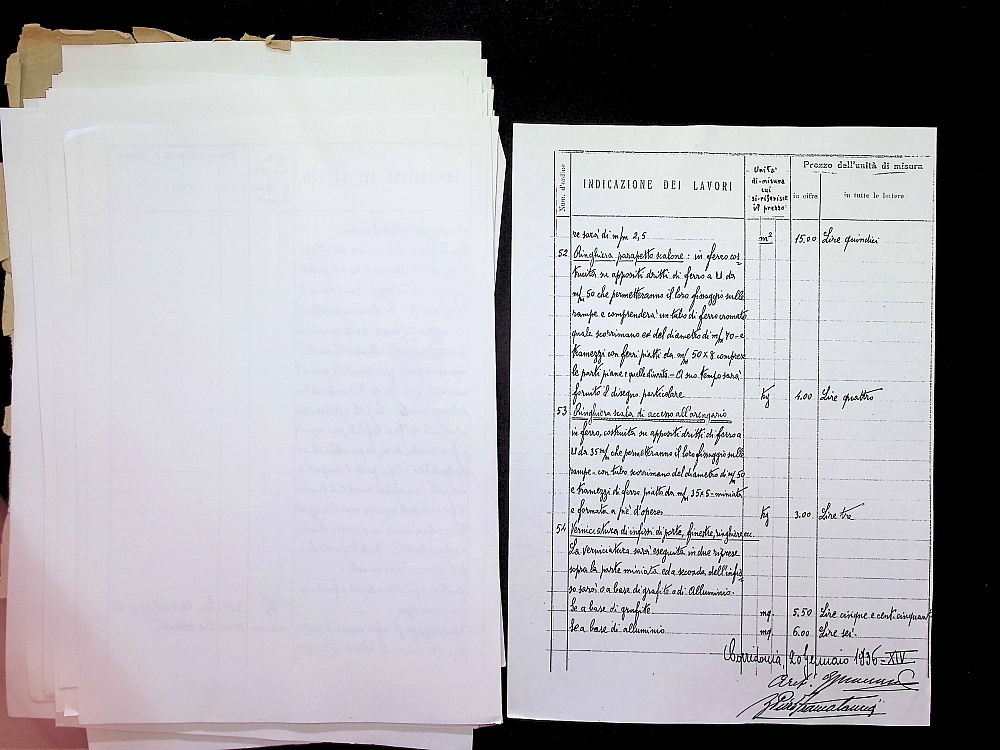 Num. d'ordine
INDICAZIONE DEI LAVORI
Unità di-misura cui si-riferisce il prezzo
Prezzo dell'unità di misura
in cifre
in tutte le lettere
re sarà di m/m 2,5 m² 15,00 Lire quindici
52 Ringhiera parapetto scalone: in ferro cos-
truita su appositi dritti di ferro a U da
m/m 50 che permetteranno il loro fissaggio sulle
rampe e comprenderà un tubo di ferro cromato
quale scorrimano del diametro di m/m 70 - e
tramezzi con ferri piatti da m/m 50 x 8 comprese
le parti piane e quelle diverse. - A suo tempo sarà
fornito il disegno particolare kg 4.00 Lire quattro
53 Ringhiera scala di accesso all'arengario
in ferro, costruita su appositi dritti di ferro a
U da 35 m/m che permetteranno il loro fissaggio sulle
rampe - con tubo scorrimano del diametro di m/m 50
e tramezzi di ferro piatto da m/m 35x5 = miniata
e formata a piè d'opera kg 3.00 Lire tre
54 Verniciatura di infissi di porte, finestre, ringhiere ecc.
La verniciatura sarà eseguita in due riprese
sopra la parte miniata ed a seconda dell'infis-
so sarà o a base di grafite o di Alluminio.
Se a base di grafite mq. 5,50 Lire cinque e cent. cinquant
Se a base di alluminio mq. 6.00 Lire sei.
Corridonia, 20 Gennaio 1936 = XIV